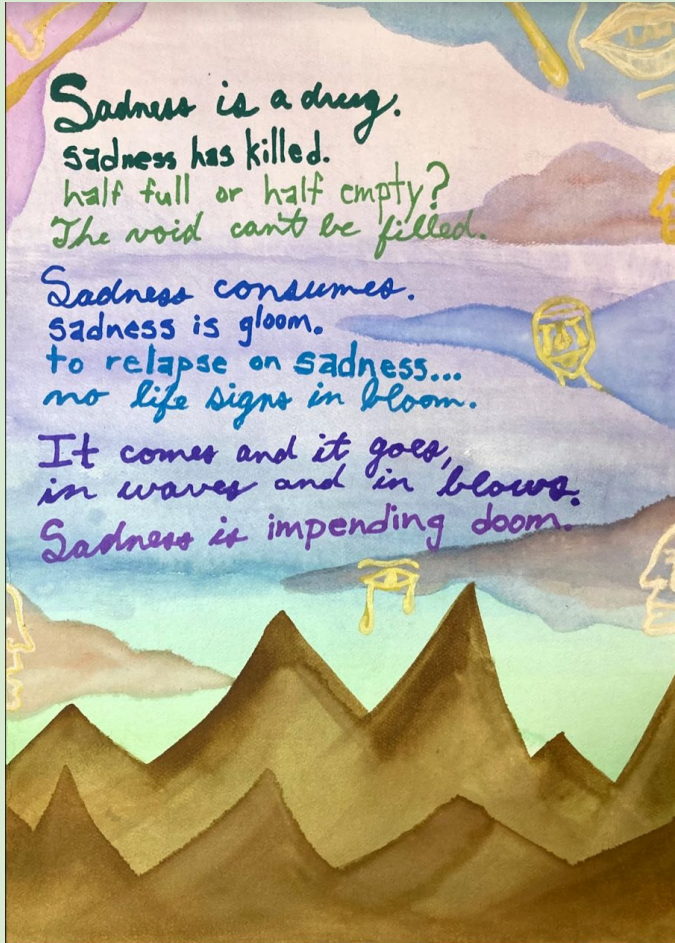 Sadness is a drug.
sadness has killed.
half full or half empty?
The void can't be filled.
Sadness consumes.
sadness is gloom.
to relapse on sadness...
no life signs in bloom.
It comes and it goes,
in waves and in blows.
Sadness is impending doom.